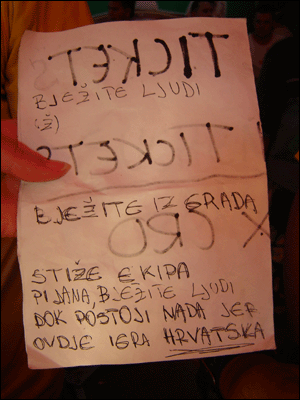 TICKETS
BJEŽITE LJUDI
(Ž)
TICKETS
BJEŽITE IZ GRADA
X CRO
STIŽE EKIPA
PIJANA, BJEŽITE LJUDI
DOK POSTOJI NADA JER
OVDJE IGRA HRVATSKA